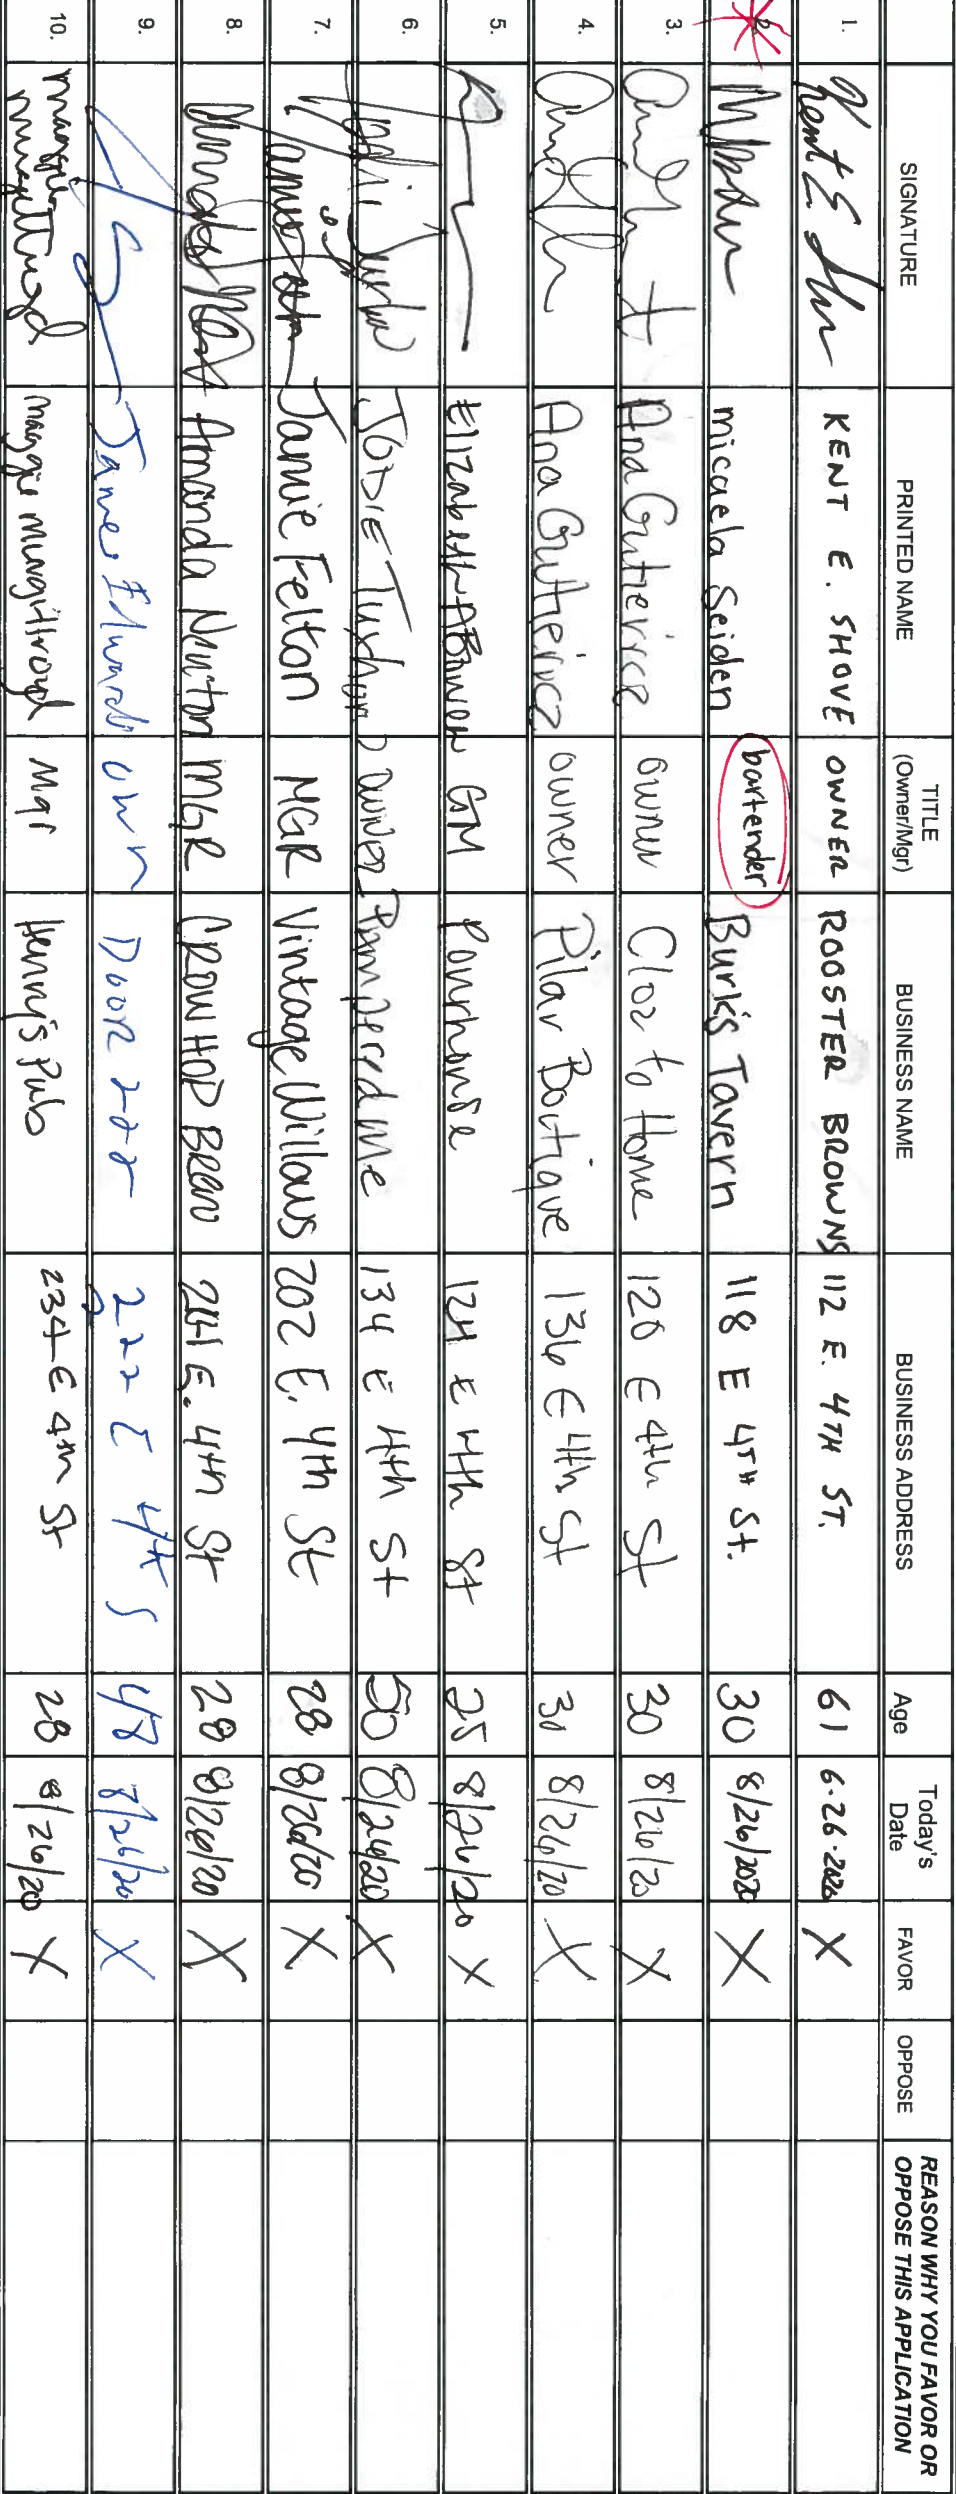 SIGNATURE PRINTED NAME TITLE (Owner/Mgr) BUSINESS NAME BUSINESS ADDRESS Age Today's Date FAVOR OPPOSE REASON WHY YOU FAVOR OR OPPOSE THIS APPLICATION
1. Kent E Shove KENT E. SHOVE OWNER ROOSTER BROWNS 112 E. 4TH ST. 61 6-26-2020 X
2. micaela Seiden bartender Burk's Tavern 118 E 4TH St. 30 8/26/2020 X
3. Ana Gutierrez owner Cloz to Home 120 E 4th St 30 8/26/20 X
4. Ana Gutierrez owner Pilar Boutique 136 E 4th St 30 8/26/20 X
5. Elizabeth A Brower GM Powrhouse E 4th St 25 8/26/20 X
6. JODIE Tuxhorn owner Pampered Me 134 E 4th St 50 8/26/20 X
7. Jamie Felton MGR Vintage Willows 202 E. 4th St 28 8/26/20 X
8. Amanda Newton MGR CROW HOP BREW E. 4th St 28 8/26/20 X
9. James Edwards own Door 222 222 E 4th S 48 8/26/20 X
10. mgr Henry's Pub 234 E 4th St 28 8/26/20 X